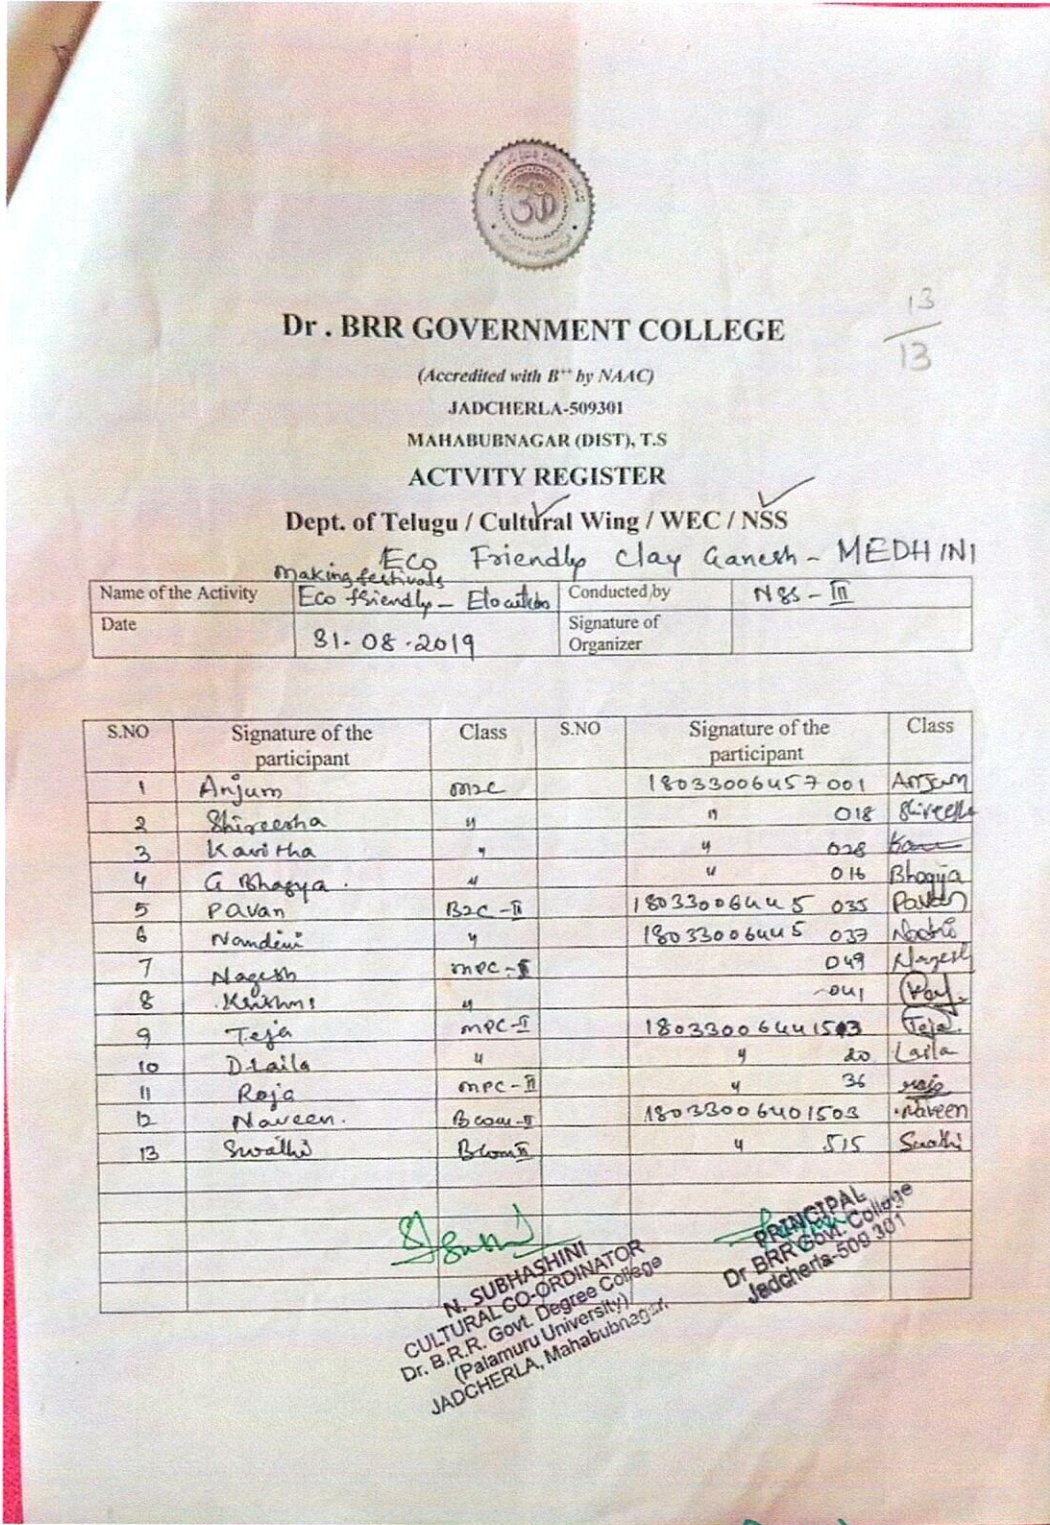 Dr . BRR GOVERNMENT COLLEGE
13
13
(Accredited with B++ by NAAC)
JADCHERLA-509301
MAHABUBNAGAR (DIST), T.S
ACTVITY REGISTER
Dept. of Telugu / Cultural Wing / WEC / NSS
Eco Friendly Clay Ganesh - MEDHINI
making festivals
Name of the Activity Eco friendly - Elocution Conducted by NSS - III
Date 31-08-2019 Signature of Organizer
S.NO Signature of the participant Class S.NO Signature of the participant Class
1 Anjum MZC 18033006457001 Anjum
2 Shireesha " " 018 Shireesha
3 Kavitha " " 028
4 G Bhagya . " " 016 Bhagya
5 Pavan BZC-II 18033006445 035 Pavan
6 Nandini " 18033006445 037
7 Nagesh MPC-II 049 Nagesh
8 " 041
9 Teja MPC-II 180330064415 Teja
10 D Laila " " 20 Laila
11 Raja MPC-II " 36 raja
12 Naveen. Bcom-II 18033006401503 Naveen
13 Swathi BcomII " 515 Swathi
PRINCIPAL
Dr BRR Govt. College
Jadcherla-509 301
N. SUBHASHINI
CULTURAL CO-ORDINATOR
Dr. B.R.R. Govt. Degree College
(Palamuru University)
JADCHERLA, Mahabubnagar.